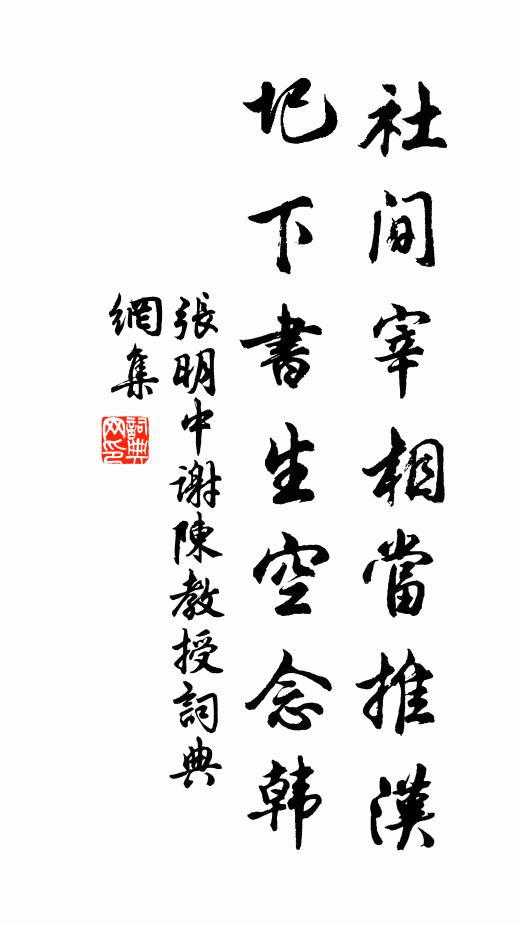 社间宰相當推漢
圯下書生空念韩
張明中谢陳教授詞典
網集
詞典
网印